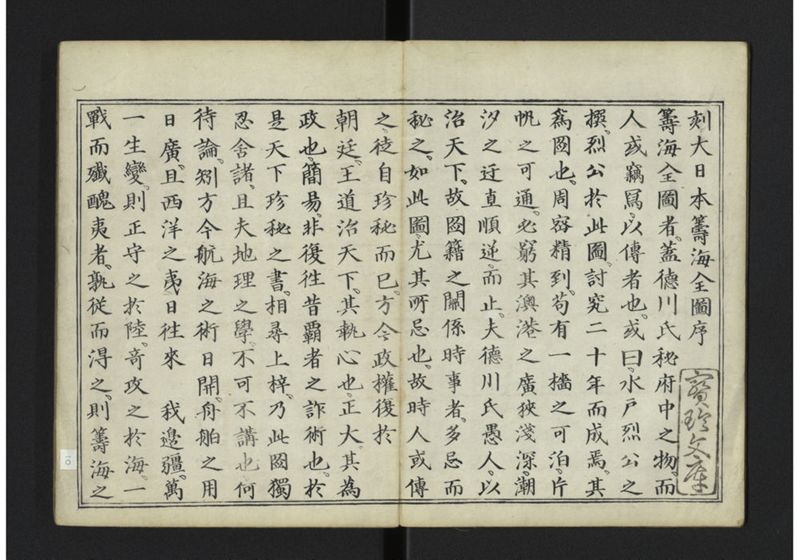 刻大日本籌海全圖序
籌海全圖者。蓋德川氏秘府中之物。而
人或竊寫。以傳者也。或曰。水戶烈公之
撰。烈公於此圖。討究二十年而成焉。其
爲圖也。周密精到。苟有一檣之可泊。片
帆之可通。必窮其澳港之廣狹淺深。潮
汐之迂直順逆而止。夫德川氏愚人。以
治天下。故圖籍之關係時事者。多忌而
秘之。如此圖。尤其所忌也。故時人或傳
之。徒自珍秘而已。方今政權復於
朝廷。王道治天下。其執心也。正大。其為
政也。簡易。非復徃昔霸者之詐術也。於
是天下珍秘之書。相尋上梓。乃此圖獨
忍舍諸。且夫地理之學。不可不講也何
待論。矧方今航海之術日開。舟舶之用
日廣。且西洋之夷。日徃來 我邊疆。萬
一生變。則正守之於陸。奇攻之於海。一
戰而殲醜夷者。孰從而得之。則籌海之
寶玲文庫